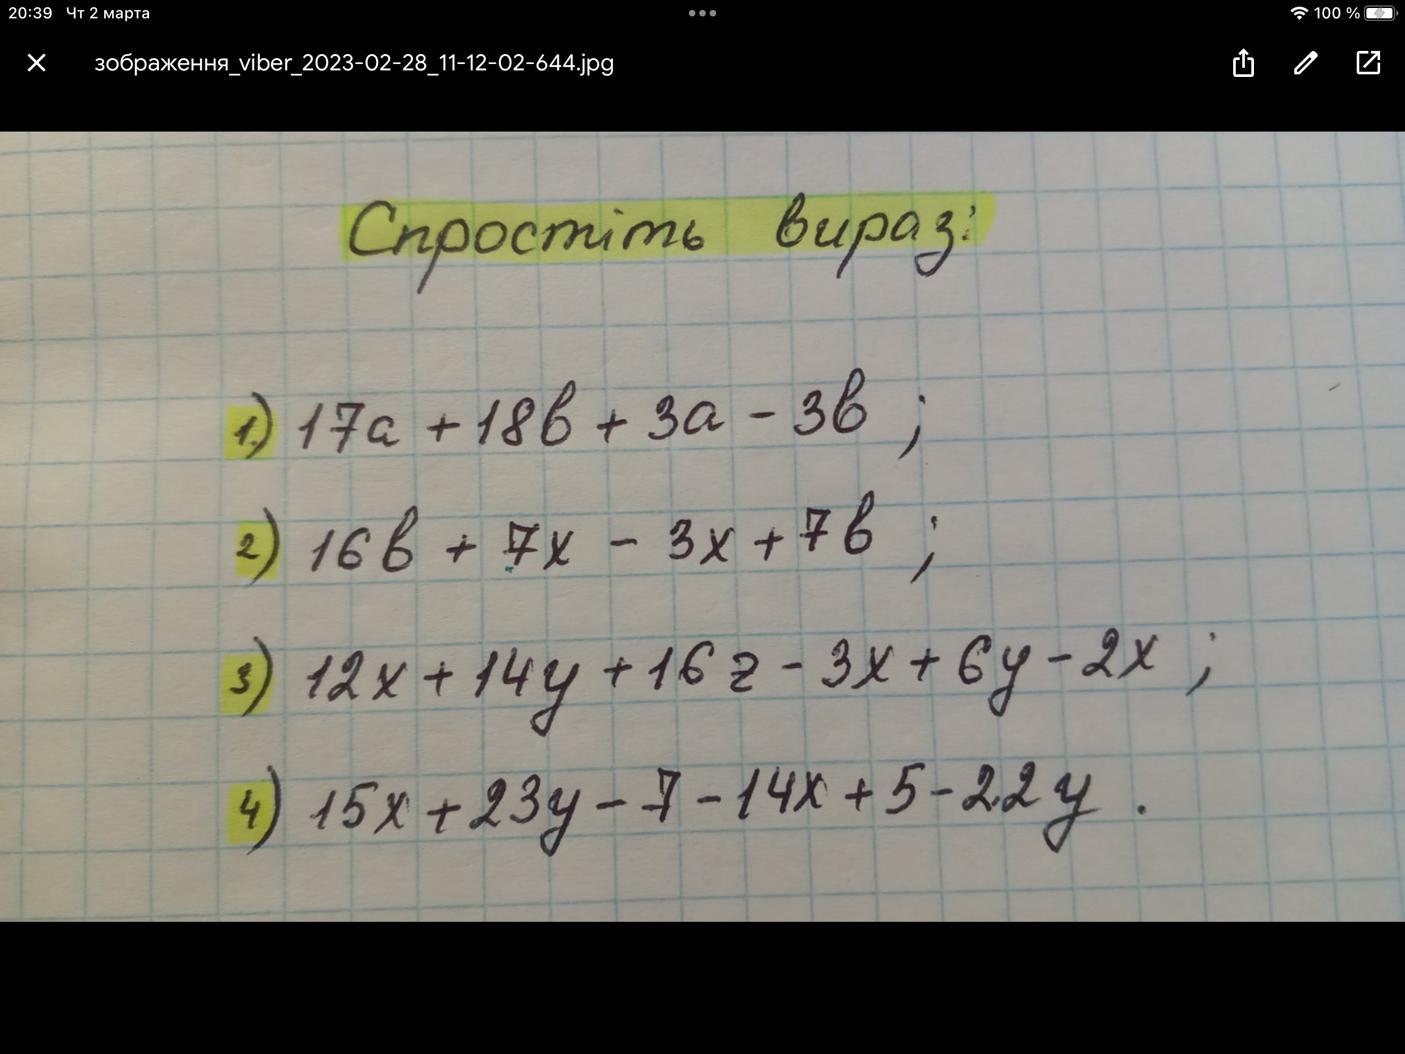 20:39 Чт 2 марта
100 %
зображення_viber_2023-02-28_11-12-02-644.jpg
Спростіть вираз:
1.) 17a + 18b + 3a - 3b ;
2) 16b + 7x - 3x + 7b ;
3) 12x + 14y + 16z - 3x + 6y - 2x ;
4) 15x + 23y - 7 - 14x + 5 - 22y .